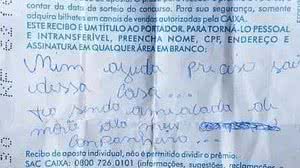 contar da data de sorteio do concurso. Para sua segurança, somente
adquira bilhetes em canais de vendas autorizadas pela CAIXA.
ESTE RECIBO É UM TÍTULO AO PORTADOR. PARA TORNÁ-LO PESSOAL
E INTRANSFERÍVEL, PREENCHA NOME, CPF, ENDEREÇO E
ASSINATURA EM QUALQUER ÁREA EM BRANCO:
ajuda preciso sai
dessa casa...
tô sendo ameaçada de
morte pelo meu
companheiro...
Recibo de aposta individual, não é permitido dividir o prêmio.
SAC CAIXA: 0800 726 0101 (informações, sugestões, reclamações